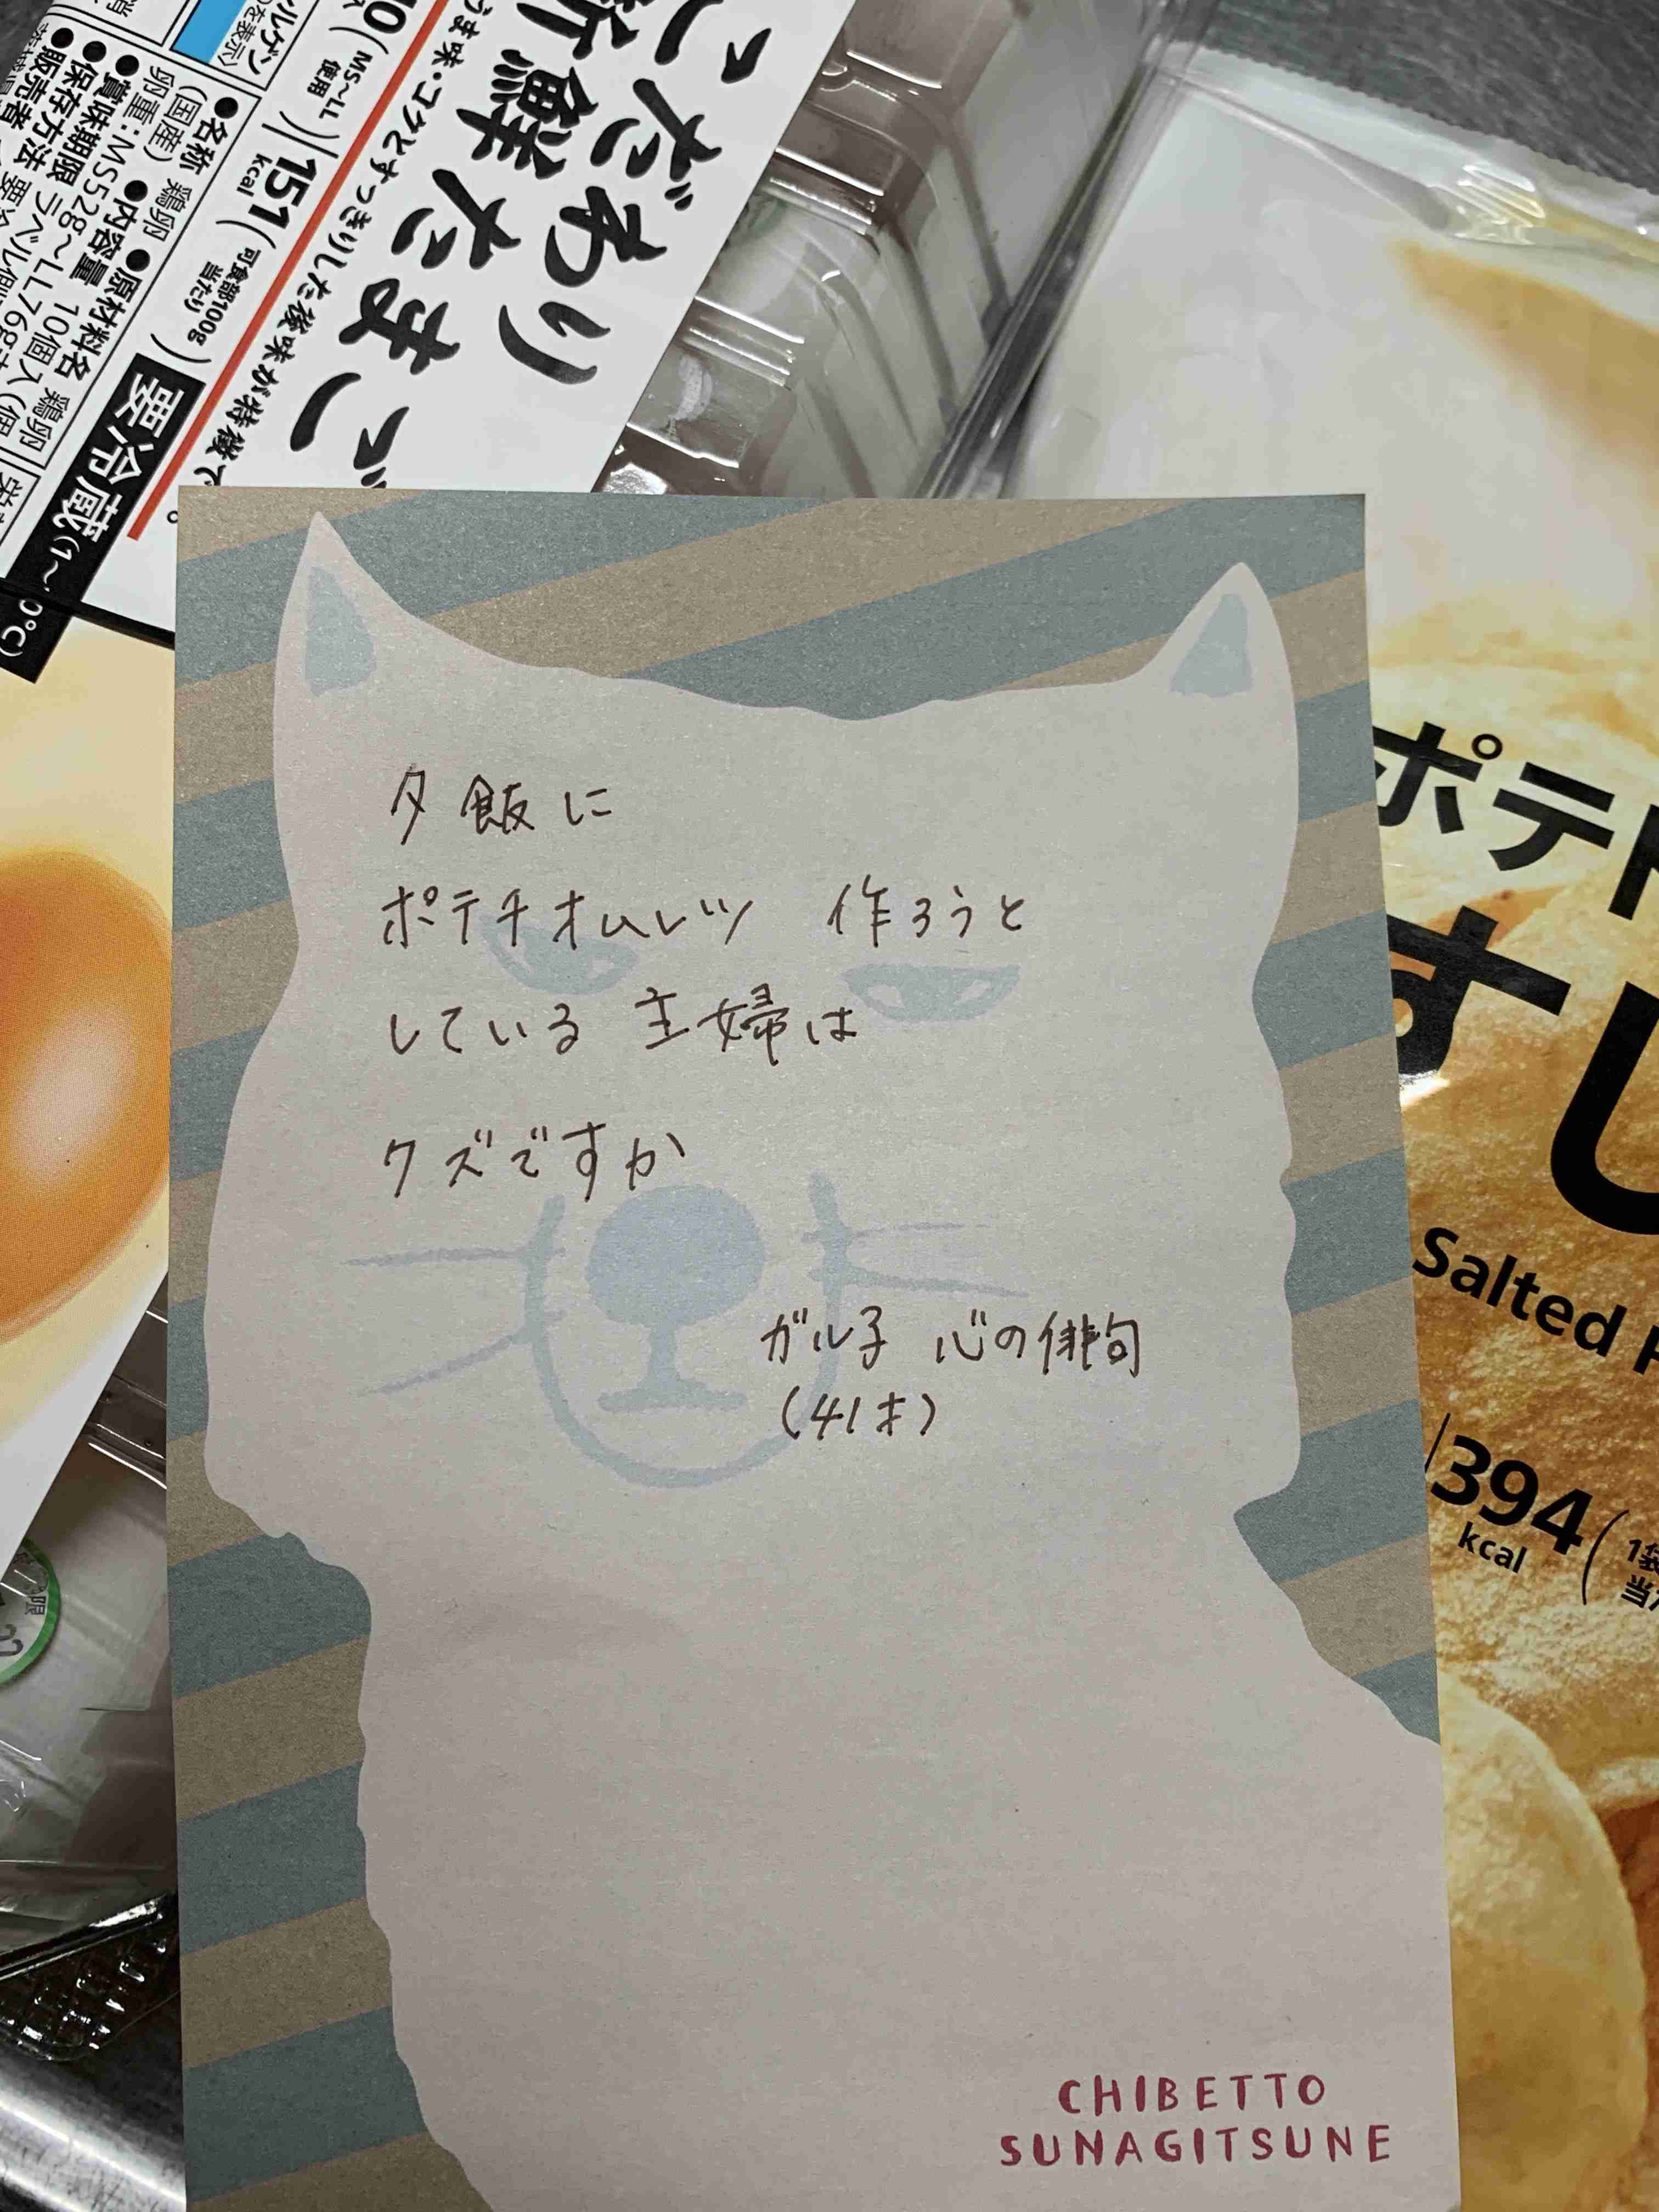 こだわり
新鮮たまご
うま味・コクとすっきりした後味が特徴で
10(MS~LL
使用)
151
kcal
(可食部100g
当たり)
要冷蔵(1~
0℃)
●名称 鶏卵 ●原材料名 鶏卵
(国産) ●内容量 10個入(個
卵重:MS52g~LL76g
●賞味期限 ラベル
●保存方法 要冷
●販売者
夕飯に
ポテチオムレツ 作ろうと
している 主婦は
クズですか
ガル子 心の俳句
(41才)
CHIBETTO
SUNAGITSUNE
ポテト
Salted
394
kcal
(1袋